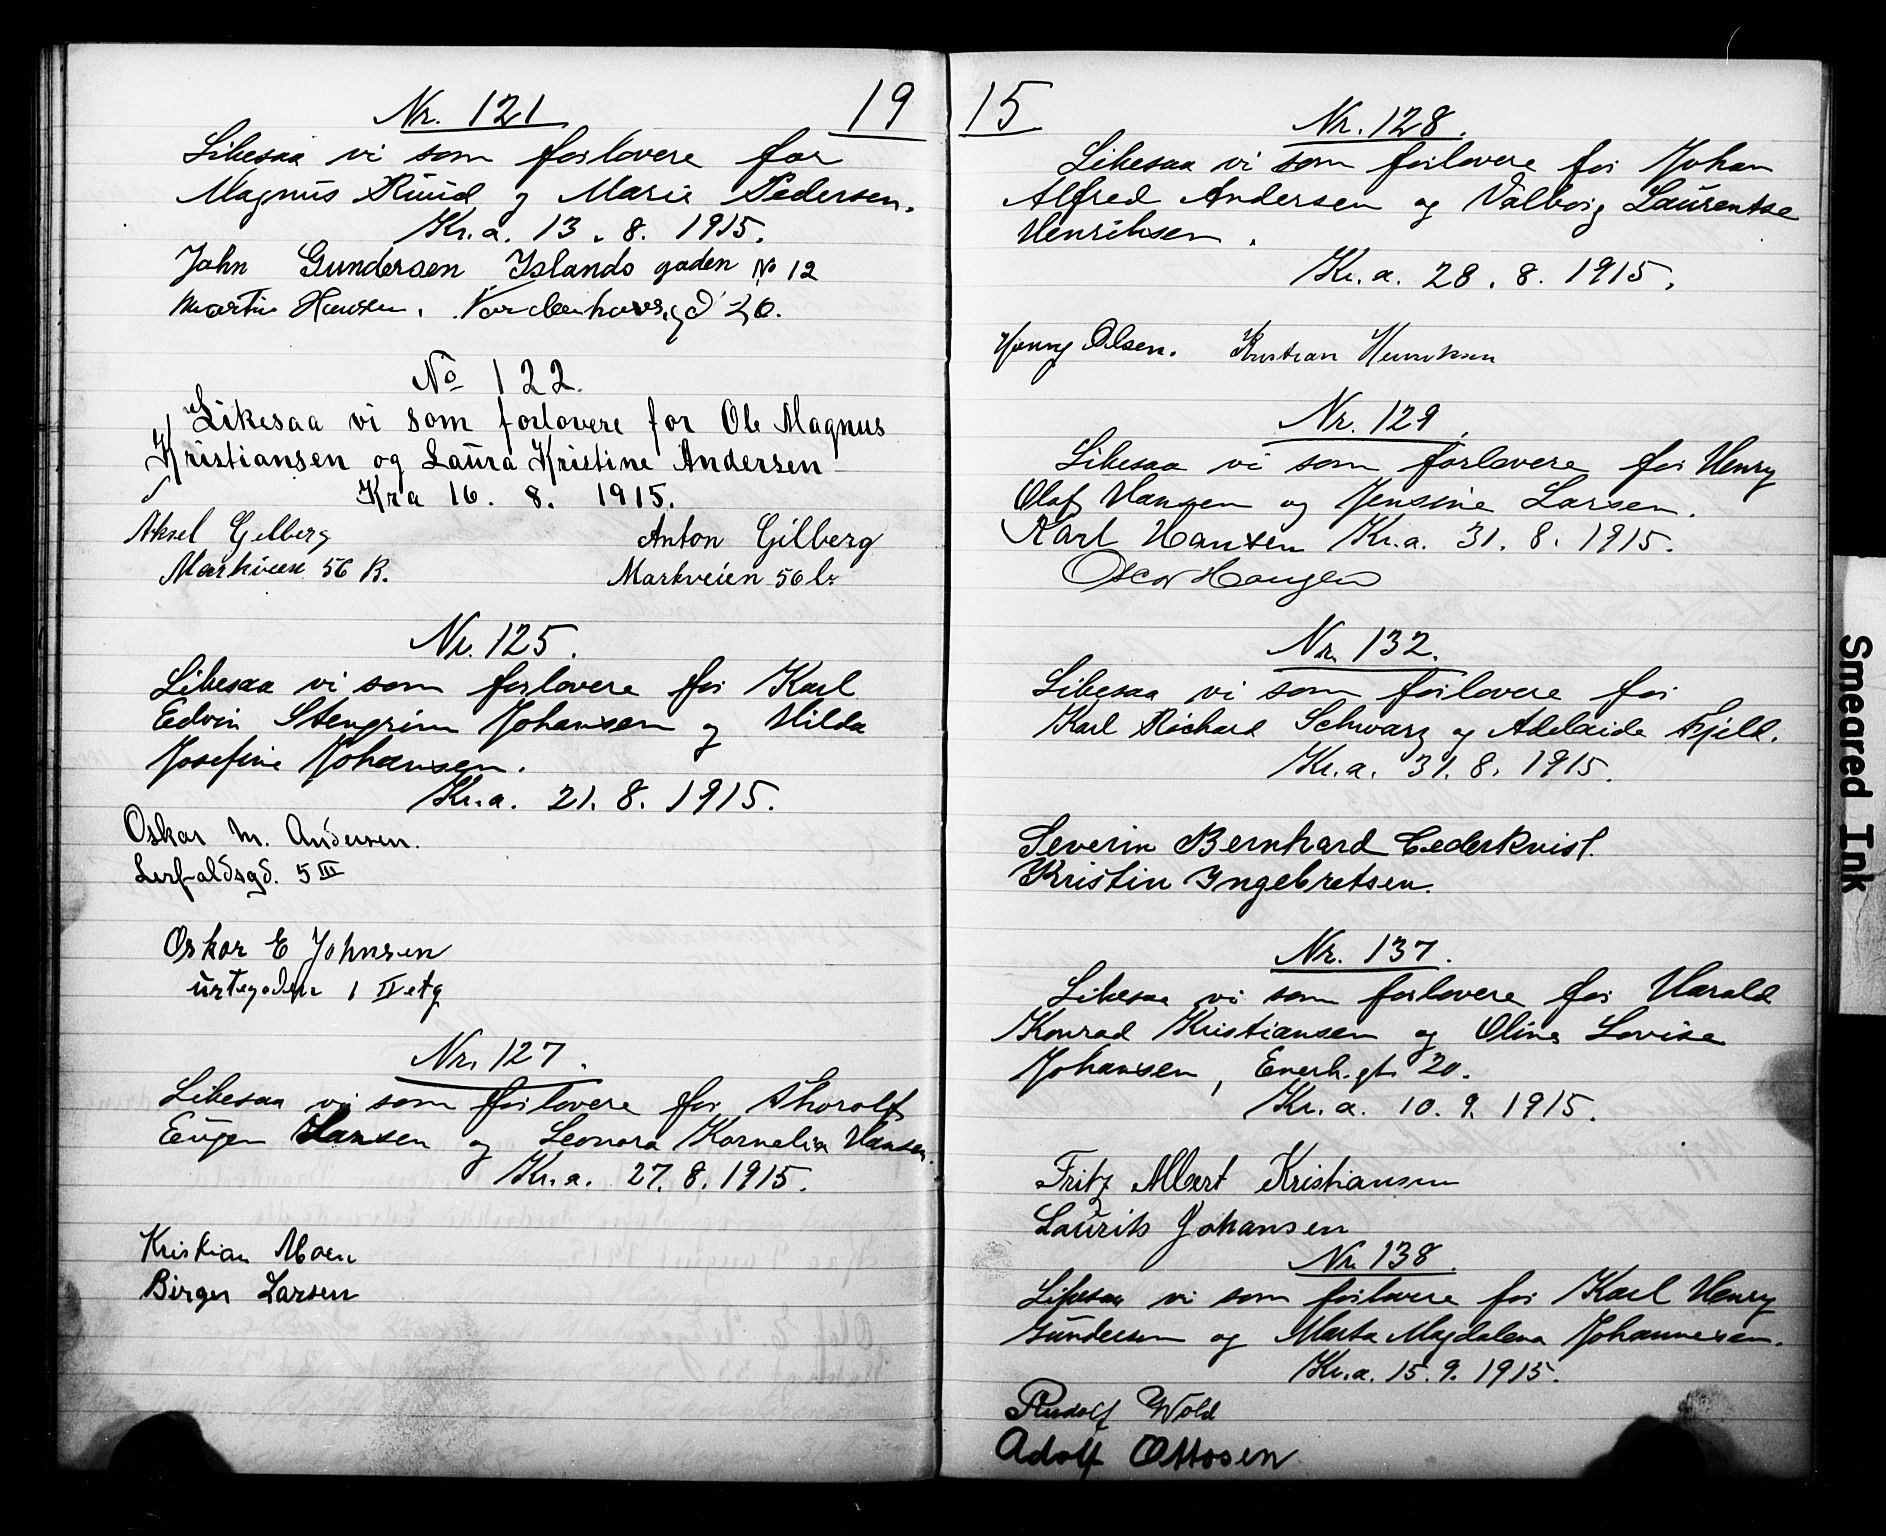 19
Nr. 121
Likesaa vi som forlovere for
Magnus Ruud og Marie Pedersen.
Kr.a. 13.8. 1915.
John Gundersen Islands gaden No 12
Martin Hansen.
No 122.
Likesaa vi som forlovere for Ole Magnus
Kristiansen og Laura Kristine Andersen
Kra 16. 8. 1915.
Aksel Gilberg Anton Gilberg
Markveien 56 B. Markveien 56 b
Nr. 125.
Likesaa vi som forlovere for Karl
Edvin Stengrim Johansen og Hilda
Josefine Johansen.
Kr.a. 21. 8. 1915.
Oskar M. Andersen.
Lerfaldsgd. 5 III
Oskar E Johnsen
urtegaden 1 II etg
Nr. 127.
Likesaa vi som forlovere for Thorolf
Eugen Hansen og Leonora Kornelia Hansen.
Kr.a. 27. 8. 1915.
Kristian Moen
Birger Larsen
15
Nr. 128.
Likesaa vi som forlovere for Johan
Alfred Andersen og Valborg Laurentse
Henriksen.
Kr.a. 28. 8. 1915.
Henry Olsen. Kristian Henriksen
Nr. 129.
Likesaa vi som forlovere for Henry
Olaf Hansen og Jensine Larsen.
Karl Hansen Kr.a. 31. 8. 1915.
Oscar Haugen
Nr. 132.
Likesaa vi som forlovere for
Karl Richard Schwarz og Adelaide Fjeld.
Kr.a. 31. 8. 1915.
Severin Bernhard Cederkvist.
Kristin Ingebretsen.
Nr. 137.
Likesaa vi som forlovere for Harald
Konrad Kristiansen og Oline Lovise
Johansen, Enerh.gt. 20.
Kr.a. 10. 9. 1915.
Fritz Albert Kristiansen
Laurits Johansen
Nr. 138.
Likesaa vi som forlovere for Karl Henry
Gundersen og Marta Magdalena Johannesen.
Kr.a. 15. 9. 1915.
Rudolf Wold
Adolf Ottosen
Smeared Ink